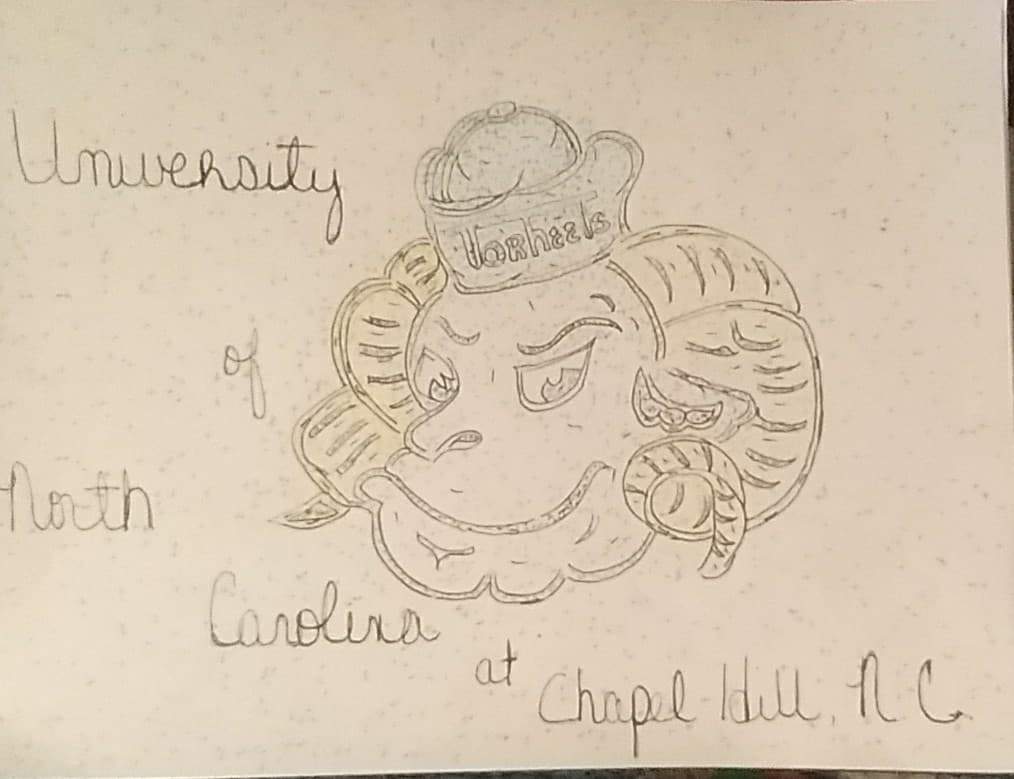 University
Tarheels
of
North
Carolina
at
Chapel Hill, N C.